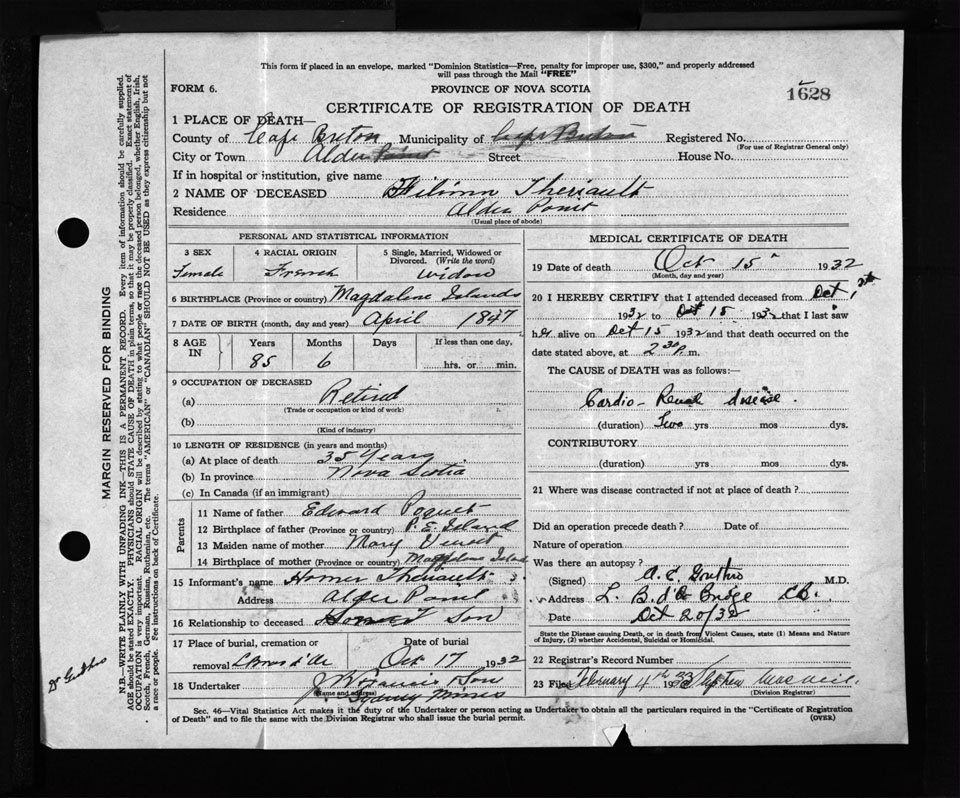 This form if placed in an envelope, marked "Dominion Statistics—Free, penalty for improper use, $300," and properly addressed
will pass through the Mail "FREE"
FORM 6.
PROVINCE OF NOVA SCOTIA
1628
CERTIFICATE OF REGISTRATION OF DEATH
1 PLACE OF DEATH—
County of Cape Breton Municipality of Cape Breton Registered No.
(For use of Registrar General only)
City or Town Alder Point Street House No.
If in hospital or institution, give name
2 NAME OF DECEASED Theriault
Residence Alder Point
(Usual place of abode)
PERSONAL AND STATISTICAL INFORMATION
3 SEX 4 RACIAL ORIGIN 5 Single, Married, Widowed or
Divorced. (Write the word)
Female French widow
6 BIRTHPLACE (Province or country) Magdalene Islands
7 DATE OF BIRTH (month, day and year) April 1847
8 AGE IN Years Months Days If less than one day,
85 6 hrs. or min.
9 OCCUPATION OF DECEASED
(a) Retired
(Trade or occupation or kind of work)
(b)
(Kind of industry)
10 LENGTH OF RESIDENCE (in years and months)
(a) At place of death 35 Years
(b) In province Nova Scotia
(c) In Canada (if an immigrant)
Parents
11 Name of father Edward
12 Birthplace of father (Province or country) P. E. Island
13 Maiden name of mother Mary
14 Birthplace of mother (Province or country) Magdalene Island
15 Informant's name Homer Theriault
Address Alder Point
16 Relationship to deceased Son
17 Place of burial, cremation or Date of burial
removal L Bras d'Or Oct 17 1932
18 Undertaker J Francis & Son
(Name and address)
Sydney Mines
MEDICAL CERTIFICATE OF DEATH
19 Date of death Oct 15 1932
(Month, day and year)
20 I HEREBY CERTIFY that I attended deceased from Oct 1
1932 to Oct 15 1932 that I last saw
her alive on Oct 15 1932 and that death occurred on the
date stated above, at 2 30 P. m.
The CAUSE of DEATH was as follows:—
Cardio-Renal disease.
(duration) Two yrs mos dys.
CONTRIBUTORY
(duration) yrs mos dys.
21 Where was disease contracted if not at place of death?
Did an operation precede death? Date of
Nature of operation
Was there an autopsy?
(Signed) M.D.
Address L. B. d'Or Bridge CB.
Date Oct 20/32
State the Disease causing Death, or in death from Violent Causes, state (1) Means and
Nature of Injury, (2) whether Accidental, Suicidal or Homicidal.
22 Registrar's Record Number
23 Filed February 4th 1933 Stephen
(Division Registrar)
Sec. 46—Vital Statistics Act makes it the duty of the Undertaker or person acting as Undertaker to obtain all the particulars required in the "Certificate of Registration
of Death" and to file the same with the Division Registrar who shall issue the burial permit.
(OVER)
MARGIN RESERVED FOR BINDING
N.B.—WRITE PLAINLY WITH UNFADING INK—THIS IS A PERMANENT RECORD. Every item of information should be carefully supplied.
AGE should be stated EXACTLY. PHYSICIANS should STATE CAUSE OF DEATH in plain terms, so that it may be properly classified. Exact statement of
OCCUPATION is very important. RACIAL ORIGIN will be described by stating to what people or race the deceased person belonged, whether English, Irish,
Scotch, French, German, Russian, Ruthenian, etc. The terms "AMERICAN" or "CANADIAN" SHOULD NOT BE USED as they express citizenship but not
a race or people. See instructions on back of Certificate.